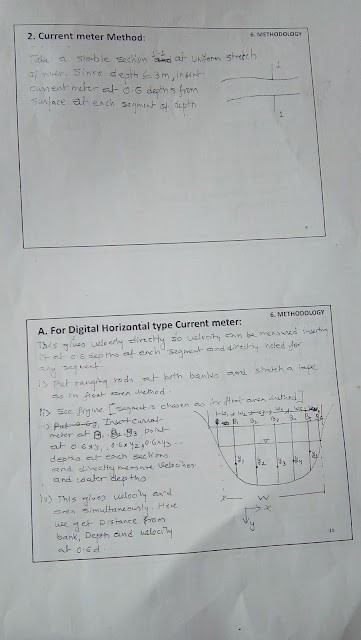 2. Current meter Method:
6. METHODOLOGY
Take a stable section 1-1 at uniform stretch
of river. Since depth ≤ 3m, insert
current meter at 0.6 depths from
surface at each segment of depth
1
1
6. METHODOLOGY
A. For Digital Horizontal type Current meter:
This gives velocity directly so velocity can be measured inserting
it at 0.6 depths at each segment and directly noted for
any segment.
i) Put ranging rods at both banks and stretch a tape
as in float area method.
ii) See figure [segment is chosen as in float area method]
iii) Insert current
meter at B1, B2, B3 point
at 0.6×y1, 0.6×y2, 0.6×y3...
depths at each sections
and directly measure velocities
and water depths.
iv) This gives velocity and
area simultaneously. Here
we get Distance from
bank, Depth and velocity
at 0.6d.
y1 y2 y3 y4
W
x
y